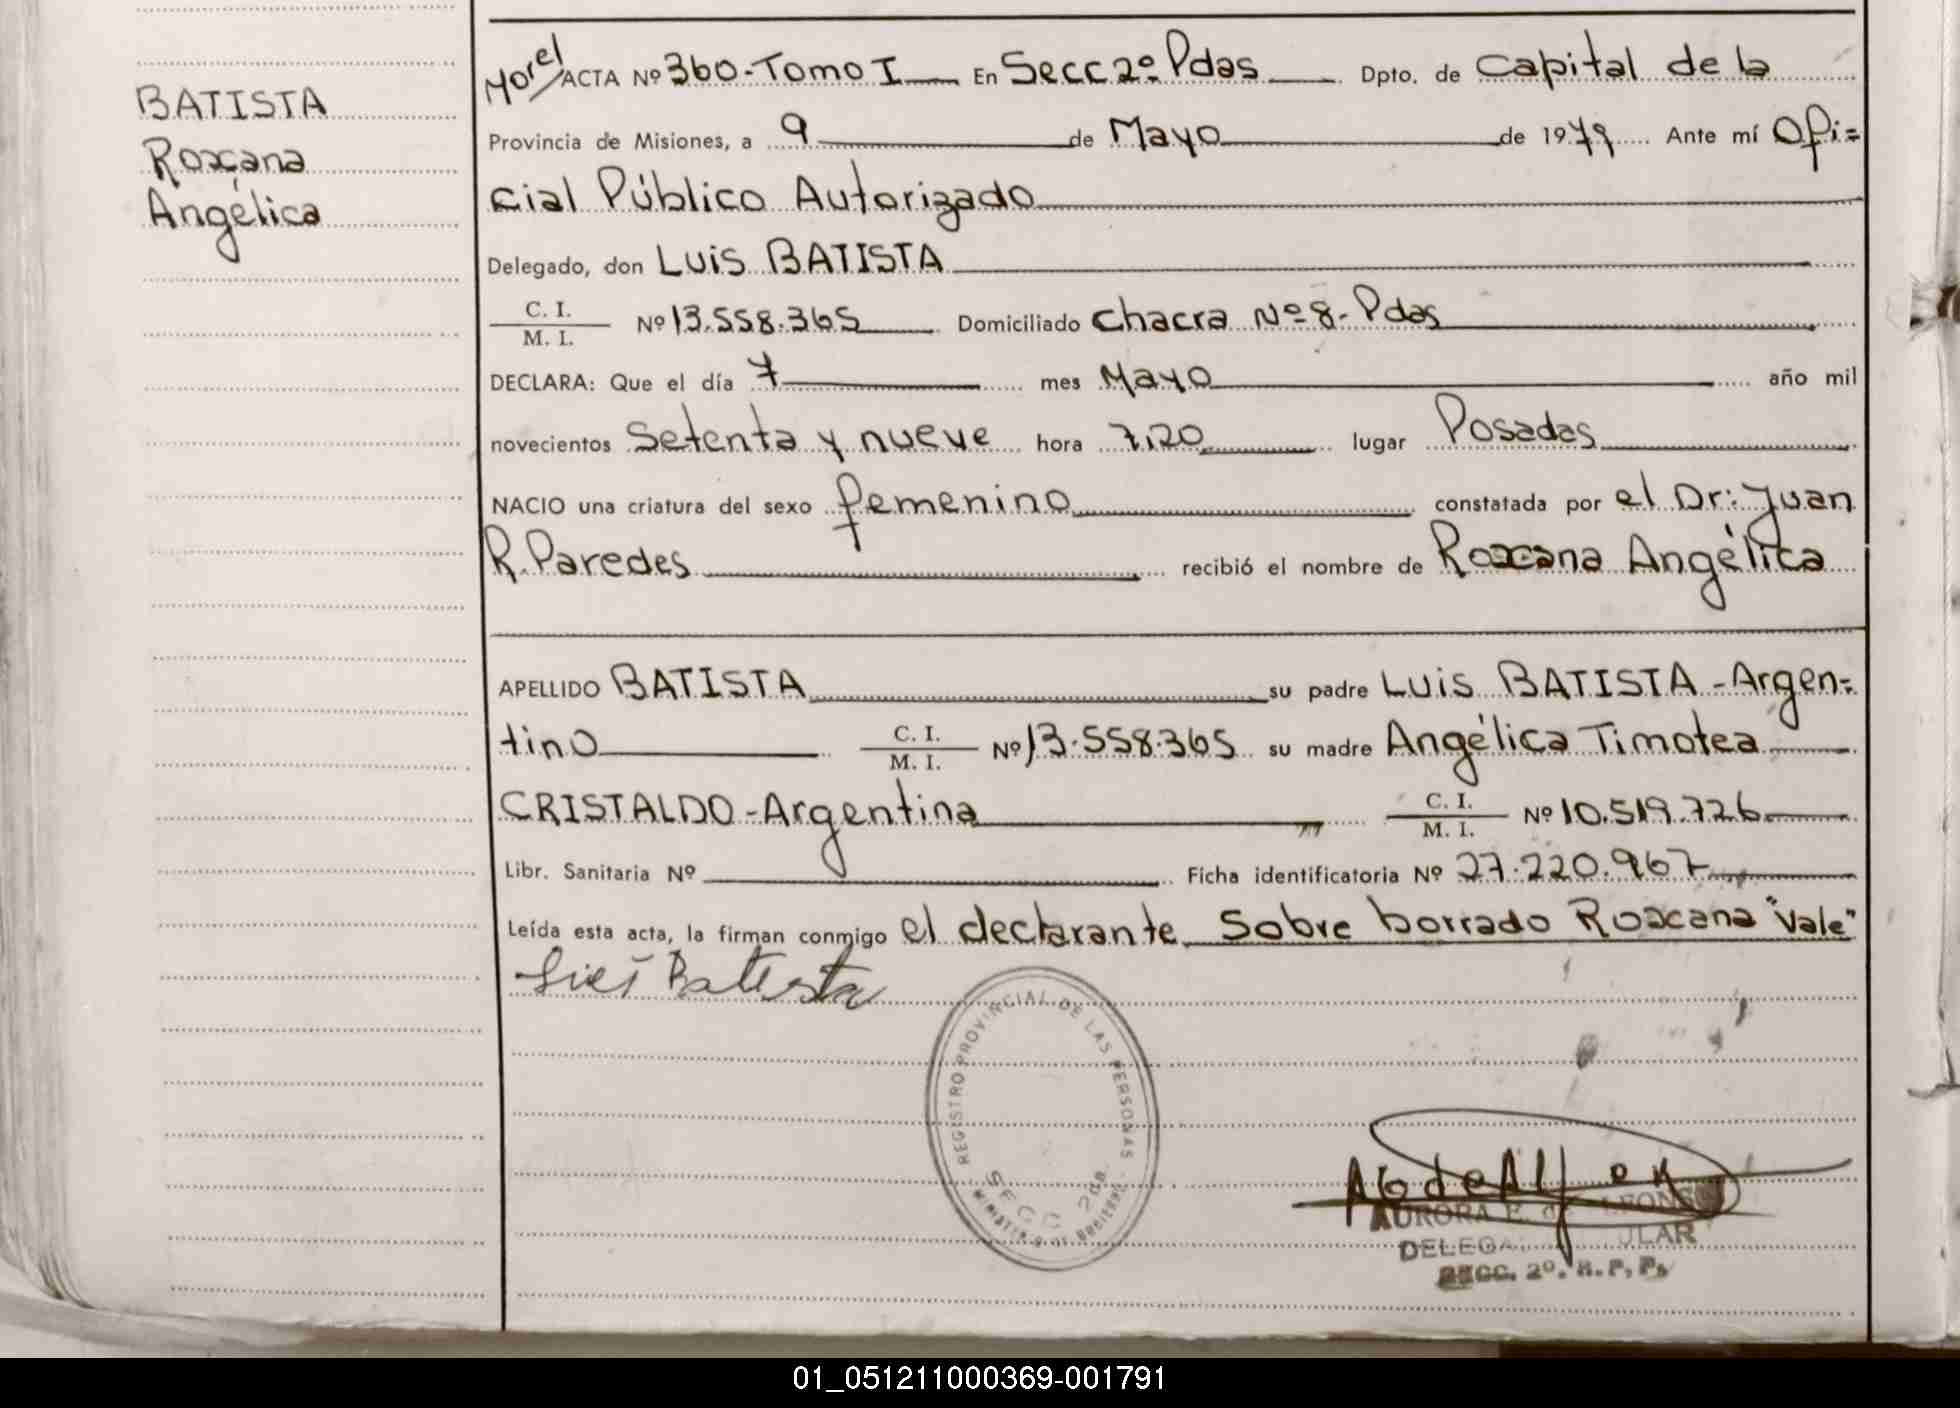 BATISTA
Roxana
Angélica
Morel
ACTA Nº 360-Tomo I En Secc 2º Pdas Dpto. de Capital de la
Provincia de Misiones, a 9 de Mayo de 1979 Ante mí Ofi=
cial Público Autorizado
Delegado, don Luis BATISTA
C. I.
M. I. Nº 13.558.365 Domiciliado Chacra Nº 8-Pdas
DECLARA: Que el día 7 mes Mayo año mil
novecientos Setenta y nueve hora 7,20 lugar Posadas
NACIO una criatura del sexo femenino constatada por el Dr: Juan
R. Paredes recibió el nombre de Roxana Angélica
APELLIDO BATISTA su padre Luis BATISTA-Argen=
tino C. I.
M. I. Nº 13.558.365 su madre Angélica Timotea
CRISTALDO-Argentina C. I.
M. I. Nº 10.519.726
Libr. Sanitaria Nº Ficha identificatoria Nº 27.220.967
Leída esta acta, la firman conmigo el declarante Sobre borrado Roxana "Vale"
Luis Batista
REGISTRO PROVINCIAL DE LAS PERSONAS
SECC 2da.
AURORA E. de
DELEGA
SECC. 2º. R. P. P.
01_051211000369-001791